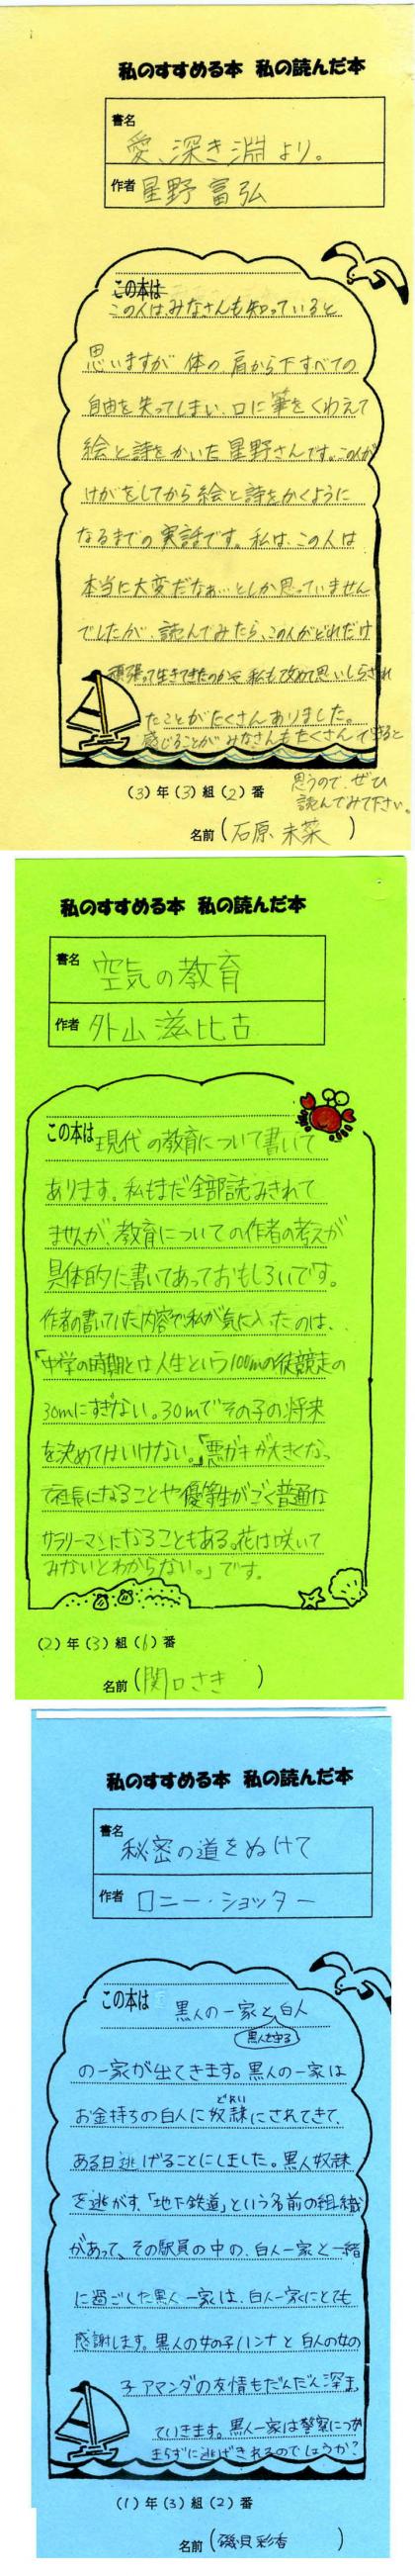 私のすすめる本 私の読んだ本
書名 愛、深き淵より。
作者 星野富弘
この本は
この人はみなさんも知っていると
思いますが 体の 肩から下すべての
自由を失ってしまい、口に筆をくわえて
絵と詩をかいた星野さんです。この人が
けがをしてから絵と詩をかくように
なるまでの実話です。私は、この人は
本当に大変だなぁ…としか思っていません
でしたが、読んでみたら、この人がどれだけ
頑張って生きてきたのかを 私も改めて思いしらされ
たことがたくさんありました。
感じることが みなさんもたくさんできると
思うので、ぜひ
読んでみて下さい。
(3)年(3)組(2)番
名前(石原 未菜 )
私のすすめる本 私の読んだ本
書名 空気の教育
作者 外山滋比古
この本は 現代の教育について書いて
あります。私もまだ全部読みきれて
ませんが、教育についての作者の考えが
具体的に書いてあっておもしろいです。
作者の書いていた内容で私が気に入ったのは、
「中学の時期とは人生という100mの徒競走の
30mにすぎない。30mでその子の将来
を決めてはいけない。」「悪ガキが大きくなっ
て社長になることや優等生がごく普通な
サラリーマンになることもある。花は咲いて
みないとわからない。」です。
(2)年(3)組(6)番
名前(関口さき )
私のすすめる本 私の読んだ本
書名 秘密の道をぬけて
作者 ロニー・ショッター
この本は 黒人の一家と白人
黒人を守る
の一家が出てきます。黒人の一家は
お金持ちの白人に奴隷にされてきて、
どれい
ある日逃げることにしました。黒人奴隷
を逃がす、「地下鉄道」という名前の組織
があって、その駅員の中の、白人一家と一緒
に過ごした黒人一家は、白人一家にとても
感謝します。黒人の女の子ハンナと白人の女の
子アマンダの友情もだんだん深ま
っていきます。黒人一家は警察につか
まらずに逃げきれるのでしょうか?
(1)年(3)組(2)番
名前(磯貝彩香 )